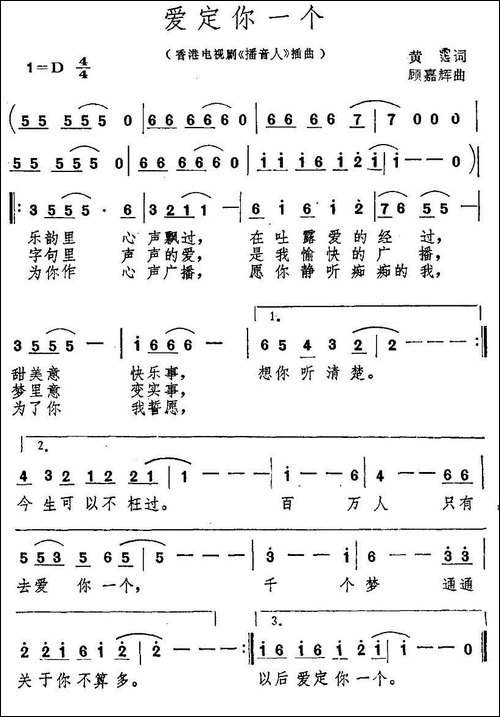 爱定你一个
(香港电视剧《播音人》插曲)
1=D 4/4
黄 霑词
顾嘉辉曲
( 5 5 5 5 5 5 0 | 6 6 6 6 6 6 0 | 6 6 6 6 6 6 7 | 7 0 0 0
5 5 5 5 5 5 0 | 6 6 6 6 6 6 0 | i i i 6 i 2 i | i - - - )
‖: 3 5 5 5 · 6 | 3 2 1 1 - | 6 i 6 i 2 | 7 6 5 5 -
乐韵里 心声飘过, 在吐露爱的经过,
字句里 声声的爱, 是我愉快的广播,
为你作 心声广播, 愿你静听痴痴的我,
3 5 5 5 - | i 6 6 6 - | 6 5 4 3 2 | 2 - - - :‖
1.
甜美意 快乐事, 想你听清楚。
梦里意 变实事,
为了你 我誓愿,
2.
4 3 2 1 2 2 1 | 1 - - - | i - i 6 | 4 - 6 6
今生可以不枉过。 百 万人 只有
5 5 3 5 6 5 | 5 - - - | 3 - i | 6 - 3 3
去爱 你一个, 千 个梦 通通
3.
2 2 i 6 i 2 | 2 - - - :‖ i 6 i 6 i i | i - - 0 ‖
关于你不算多。 以后爱定你一个。